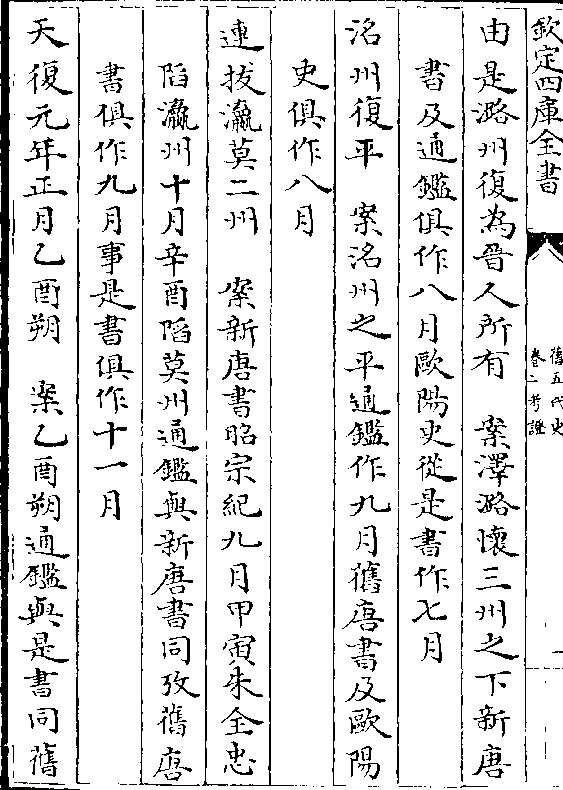 欽定四庫全書
舊五代史
卷二考證
一
由是潞州復為晉人所有　案澤潞懷三州之下新唐
書及通鑑俱作八月歐陽史從是書作七月
洺州復平　案洺州之平通鑑作九月舊唐書及歐陽
史俱作八月
連拔瀛莫二州　案新唐書昭宗紀九月甲寅朱全忠
陷瀛州十月辛酉陷莫州通鑑與新唐書同攷舊唐
書俱作九月事是書俱作十一月
天復元年正月乙酉朔　案乙酉朔通鑑與是書同舊